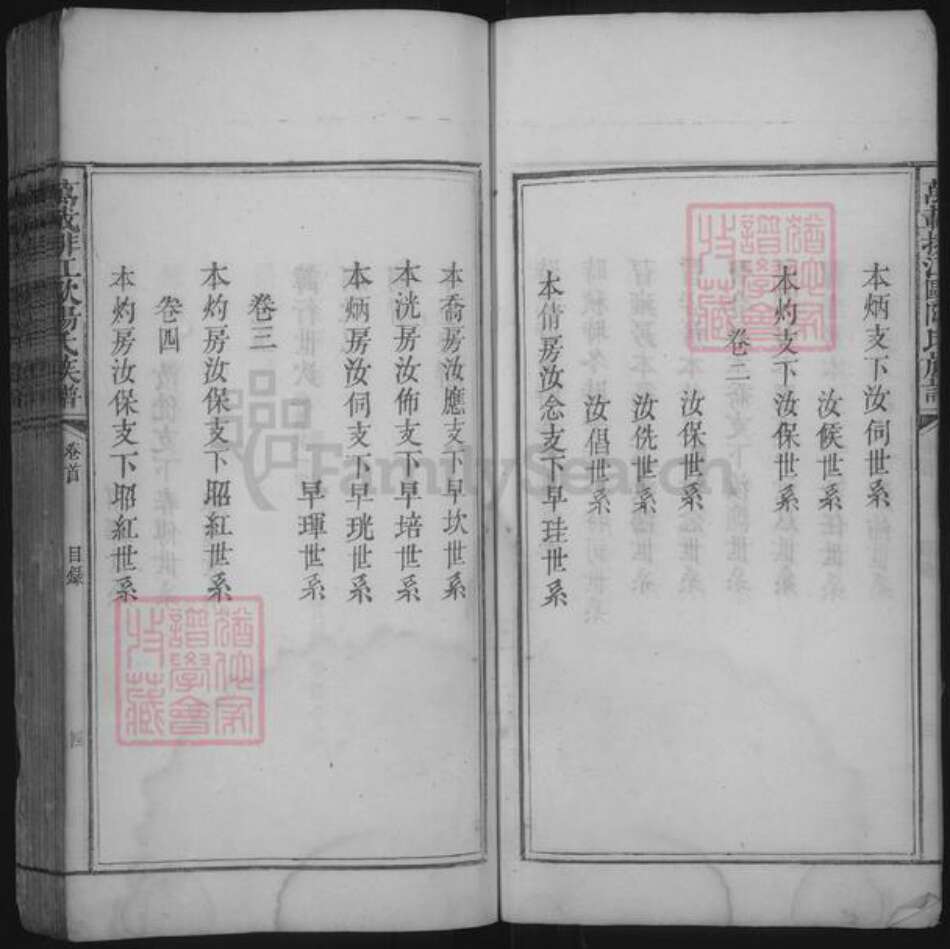 本炳支下汝伺世系
汝候世系
本灼支下汝保世系
卷二
汝保世系
汝侁世系
汝倡世系
本倩房汝念支下早珪世系
本喬房汝應支下早坎世系
本洸房汝佈支下早培世系
本炳房汝伺支下早珖世系
早琿世系
卷三
本灼房汝保支下昭紅世系
卷四
本灼房汝保支下昭紅世系
族譜
卷首
目錄
四
猶他家譜學會收藏
猶他家譜學會收藏
FamilySearch